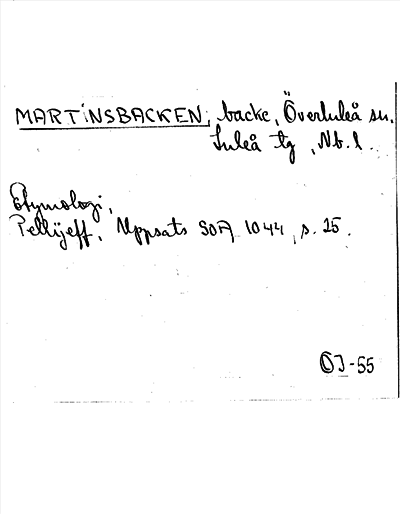 MARTINSBACKEN, backe, Överluleå sn.
Luleå tg, Nb. l.
Etymologi,
Pellijeff, Uppsats SOA 1044, s. 25.
OJ-55